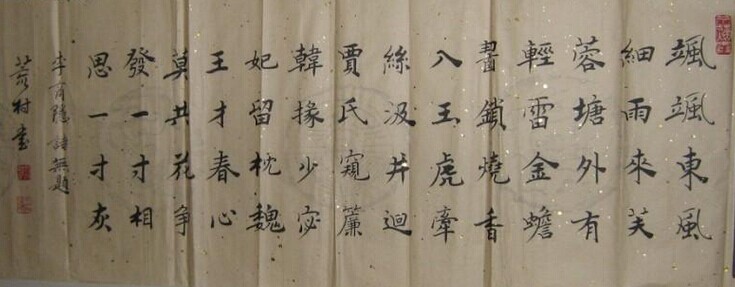 颯颯東風
細雨來芙
蓉塘外有
輕雷金蟾
齧鎖燒香
入玉虎牽
絲汲井迴
賈氏窺簾
韓掾少宓
妃留枕魏
王才春心
莫共花爭
發一寸相
思一寸灰
李商隱詩無題
村書